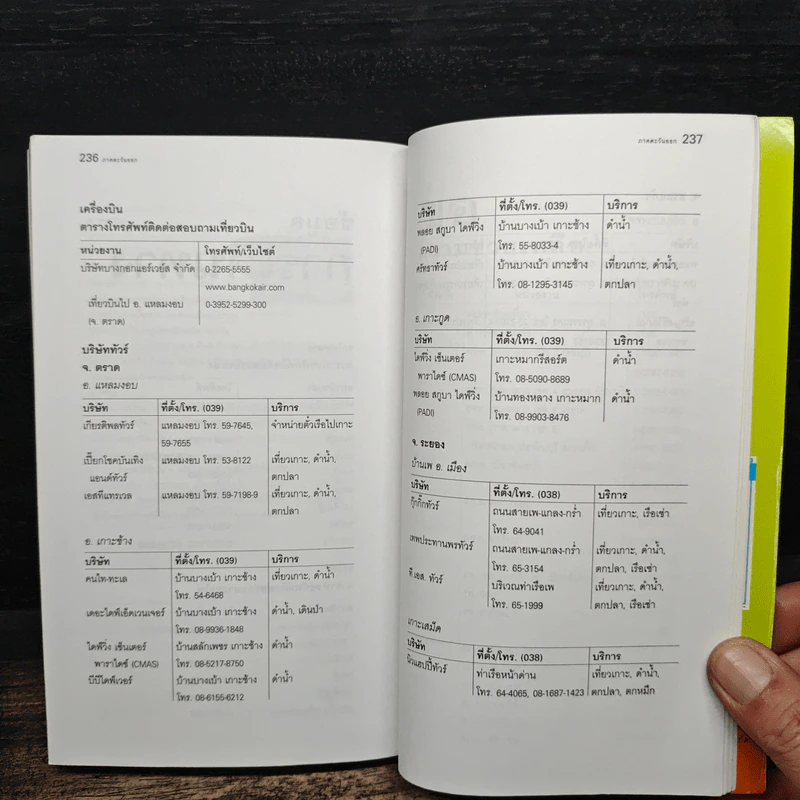 236 ภาคตะวันออก
เครื่องบิน
ตารางโทรศัพท์ติดต่อสอบถามเที่ยวบิน
หน่วยงาน โทรศัพท์/เว็บไซต์
บริษัทบางกอกแอร์เวย์ส จำกัด 0-2265-5555
www.bangkokair.com
เที่ยวบินไป อ. แหลมงอบ 0-3952-5299,300
(จ. ตราด)
บริษัททัวร์
จ. ตราด
อ. แหลมงอบ
บริษัท ที่ตั้ง/โทร. (039) บริการ
เกียรติพลทัวร์ แหลมงอบ โทร. 59-7645, จำหน่ายตั๋วเรือไปเกาะ
59-7655
เปี๊ยกโชคบันเทิง แหลมงอบ โทร. 53-8122 เที่ยวเกาะ, ดำน้ำ,
แอนด์ทัวร์ ตกปลา
เอสทีแทรเวล แหลมงอบ โทร. 59-7198-9 เที่ยวเกาะ, ดำน้ำ,
ตกปลา
อ. เกาะช้าง
บริษัท ที่ตั้ง/โทร. (039) บริการ
คนไท-ทะเล บ้านบางเบ้า เกาะช้าง เที่ยวเกาะ, ดำน้ำ
โทร. 54-6468
เดอะไดฟ์เอ็ดเวนเจอร์ บ้านบางเบ้า เกาะช้าง ดำน้ำ, เดินป่า
โทร. 08-9936-1848
ไดฟ์วิ่ง เซ็นเตอร์ บ้านสลักเพชร เกาะช้าง ดำน้ำ
พาราไดซ์ (CMAS) โทร. 08-5217-8750
บีบีไดฟ์เวอร์ บ้านบางเบ้า เกาะช้าง ดำน้ำ
โทร. 08-6155-6212
ภาคตะวันออก 237
บริษัท ที่ตั้ง/โทร. (039) บริการ
พลอย สกูบา ไดฟ์วิ่ง บ้านบางเบ้า เกาะช้าง ดำน้ำ
(PADI) โทร. 55-8033-4
ศรัทธาทัวร์ บ้านบางเบ้า เกาะช้าง เที่ยวเกาะ, ดำน้ำ,
โทร. 08-1295-3145 ตกปลา
อ. เกาะกูด
บริษัท ที่ตั้ง/โทร. (039) บริการ
ไดฟ์วิ่ง เซ็นเตอร์ เกาะหมากรีสอร์ต ดำน้ำ
พาราไดซ์ (CMAS) โทร. 08-5090-8689
พลอย สกูบา ไดฟ์วิ่ง บ้านทองหลาง เกาะหมาก ดำน้ำ
(PADI) โทร. 08-9903-8476
จ. ระยอง
บ้านเพ อ. เมือง
บริษัท ที่ตั้ง/โทร. (038) บริการ
กุ๊กกิ๊กทัวร์ ถนนสายเพ-แกลง-กร่ำ เที่ยวเกาะ, เรือเช่า
โทร. 64-9041
เทพประทานพรทัวร์ ถนนสายเพ-แกลง-กร่ำ เที่ยวเกาะ, ดำน้ำ,
โทร. 65-3154 ตกปลา, เรือเช่า
ที.เอส. ทัวร์ บริเวณท่าเรือเพ เที่ยวเกาะ, ดำน้ำ,
โทร. 65-1999 ตกปลา, เรือเช่า
เกาะเสม็ด
บริษัท ที่ตั้ง/โทร. (038) บริการ
นิวแฮปปี้ทัวร์ ท่าเรือหน้าด่าน เที่ยวเกาะ, ดำน้ำ,
โทร. 64-4065, 08-1687-1423 ตกปลา, ตกหมึก